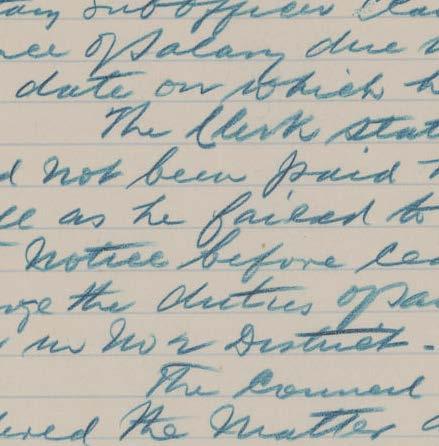 Sub officer
of salary due
date on which h
The Clerk stat
d not been paid
as he failed to
Notice before lea
the duties of sa
in No 2 District -
The Council
ered the Matter